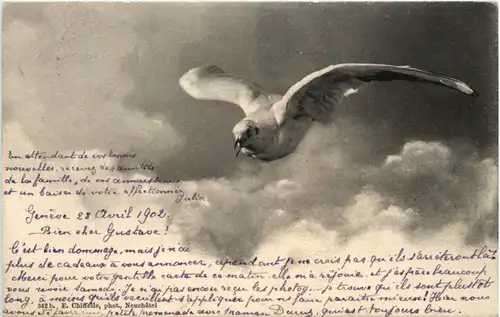 En attendant de vos bonnes
nouvelles, recevez des amitiés
de la famille, de vos connaissances
et un baiser de votre affectionnée
Julia.
Genève 28 Avril 1902.
Bien cher Gustave!
C'est bien dommage, mais je n'ai
plus de cadeaux à vous annoncer, cependant je ne crois pas qu'ils s'arrêteront là
Merci pour votre gentille carte de ce matin elle m'a réjouie, et j'espère beaucoup
vous revoir Samedi. Je n'ai pas encore reçu les photog. Je trouve qu'ils sont plutôt
long, à moins qu'ils veuillent s'appliquer pour me faire paraître mieux! Hier nous
avons fait une petite promenade avec maman qui est toujours bien.
342 b. E. Chiffelle, phot. Neuchâtel